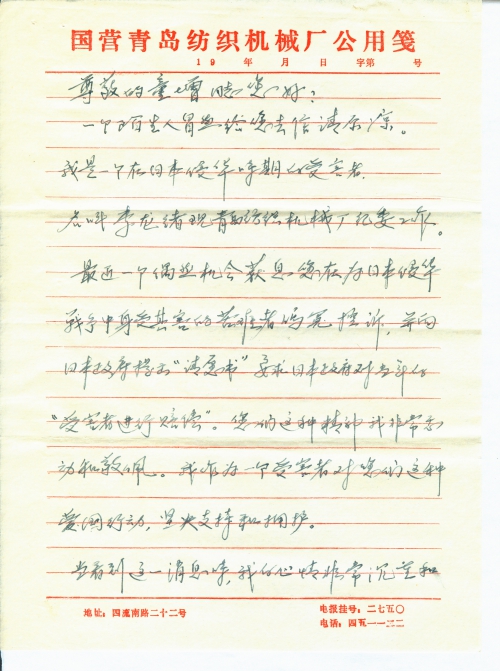 国营青岛纺织机械厂公用笺
19 年 月 日 字第 号
尊敬的童增同志您好:
一个陌生人冒然给您去信请原谅。
我是一个在日本侵华时期的受害者.
名叫李龙绪现青岛纺织机械厂纪委工作。
最近一个偶然机会获息您在为日本侵华
战争中身受其害的苦难者鸣冤控诉,并向
日本政府提出"请愿书"要求日本政府对当年的
"受害者进行赔偿"。您们的这种精神我非常感
动和敬佩。我作为一个受害者对您们这种
爱国行动,坚决支持和拥护。
当看到这一消息时,我的心情非常沉重和
地址:四流南路二十二号
电报挂号:二七五〇
电话:四五一一二二